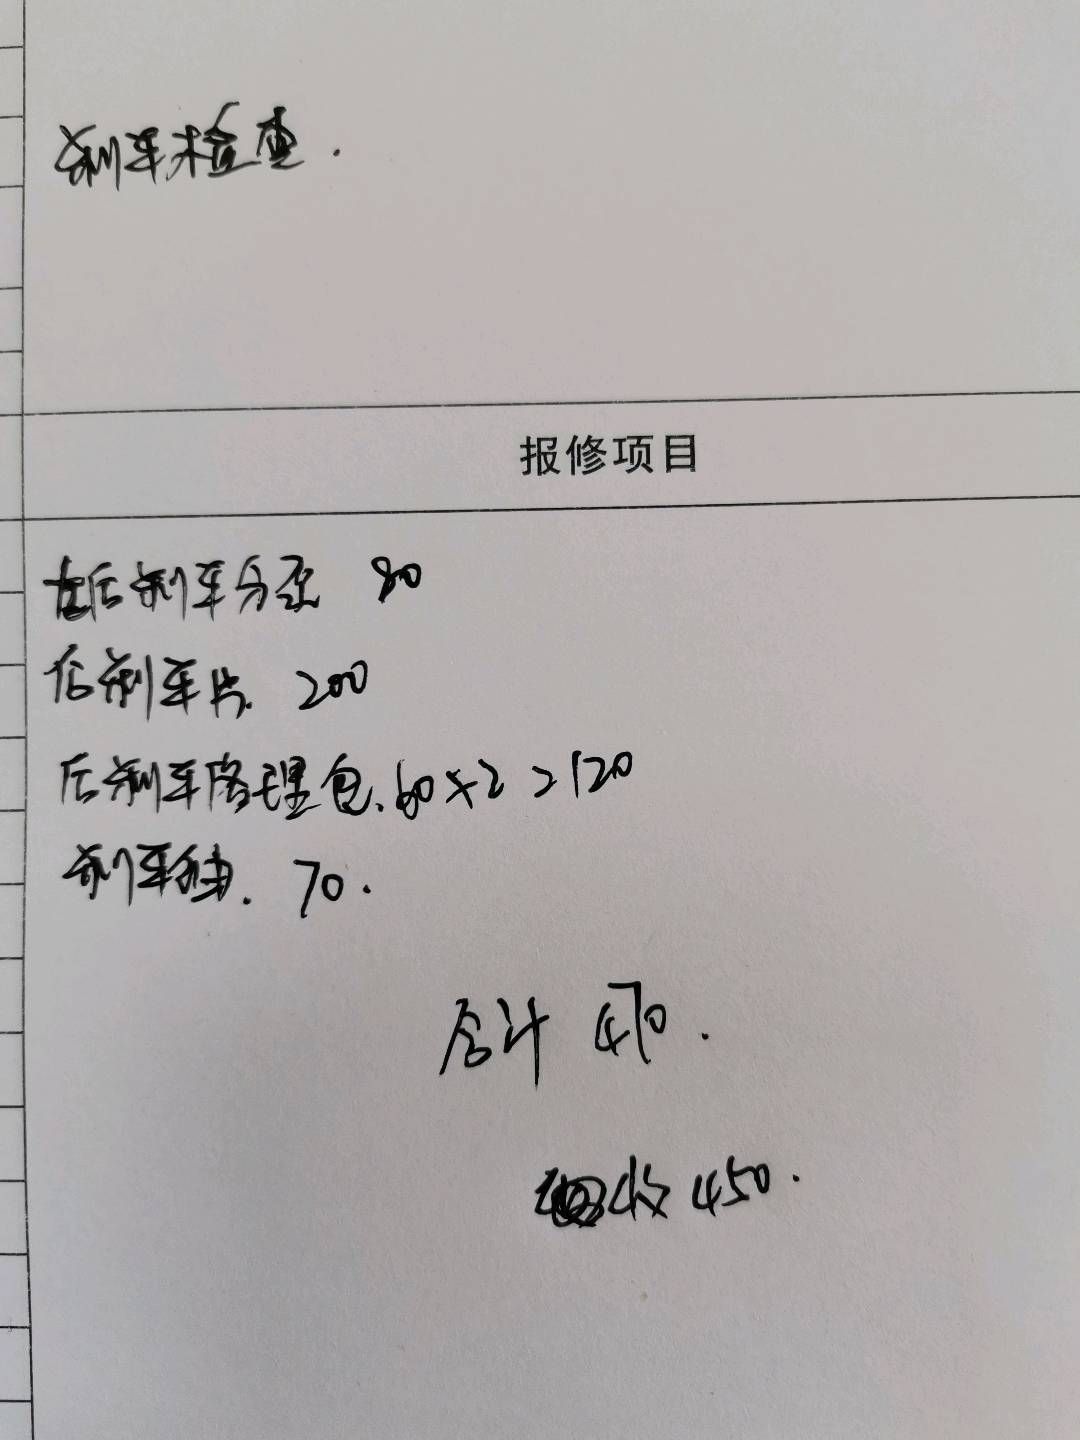 刹车检查.
报修项目
左后刹车分泵 80
后刹车片. 200
后刹车修理包. 60×2=120
刹车油. 70.
合计 470.
收 450.